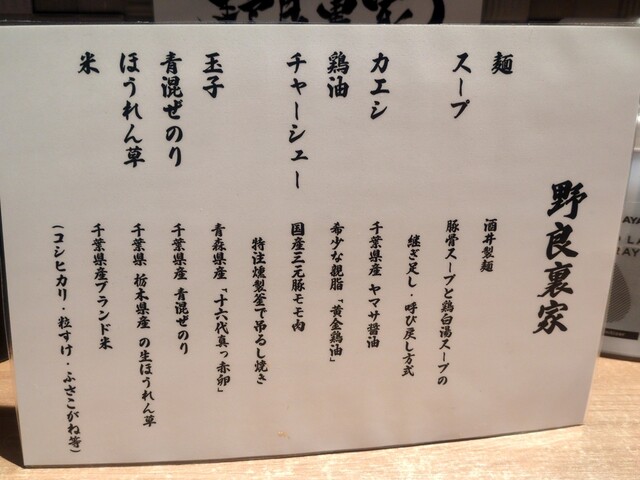 野良裏家
麺
酒井製麺
スープ
豚骨スープと鶏白湯スープの
継ぎ足し・呼び戻し方式
カエシ
千葉県産 ヤマサ醤油
鶏油
希少な親脂「黄金鶏油」
チャーシュー
国産三元豚モモ肉
特注燻製釜で吊るし焼き
玉子
青森県産「十六代真っ赤卵」
青混ぜのり
千葉県産 青混ぜのり
ほうれん草
千葉県 栃木県産 の生ほうれん草
米
千葉県産ブランド米
(コシヒカリ・粒すけ・ふさこがね等)